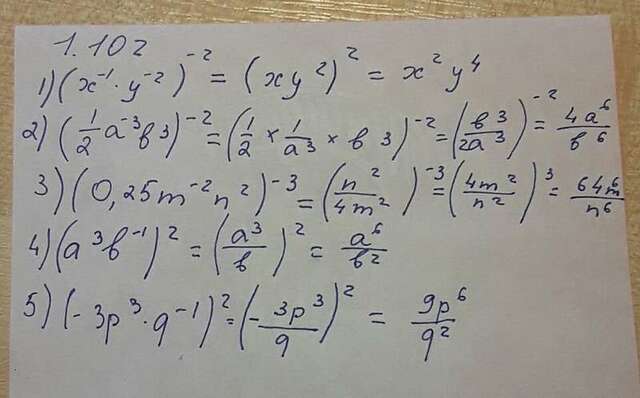 1.102
1) (x⁻¹·y⁻²)⁻² = (xy²)² = x²y⁴
2) (1/2 a⁻³в³)⁻² = (1/2 × 1/a³ × в³)⁻² = (в³/2a³)⁻² = 4a⁶/в⁶
3) (0,25m⁻²n²)⁻³ = (n²/4m²)⁻³ = (4m²/n²)³ = 64m⁶/n⁶
4) (a³в⁻¹)² = (a³/в)² = a⁶/в²
5) (-3p³·q⁻¹)² = (-3p³/q)² = 9p⁶/q²